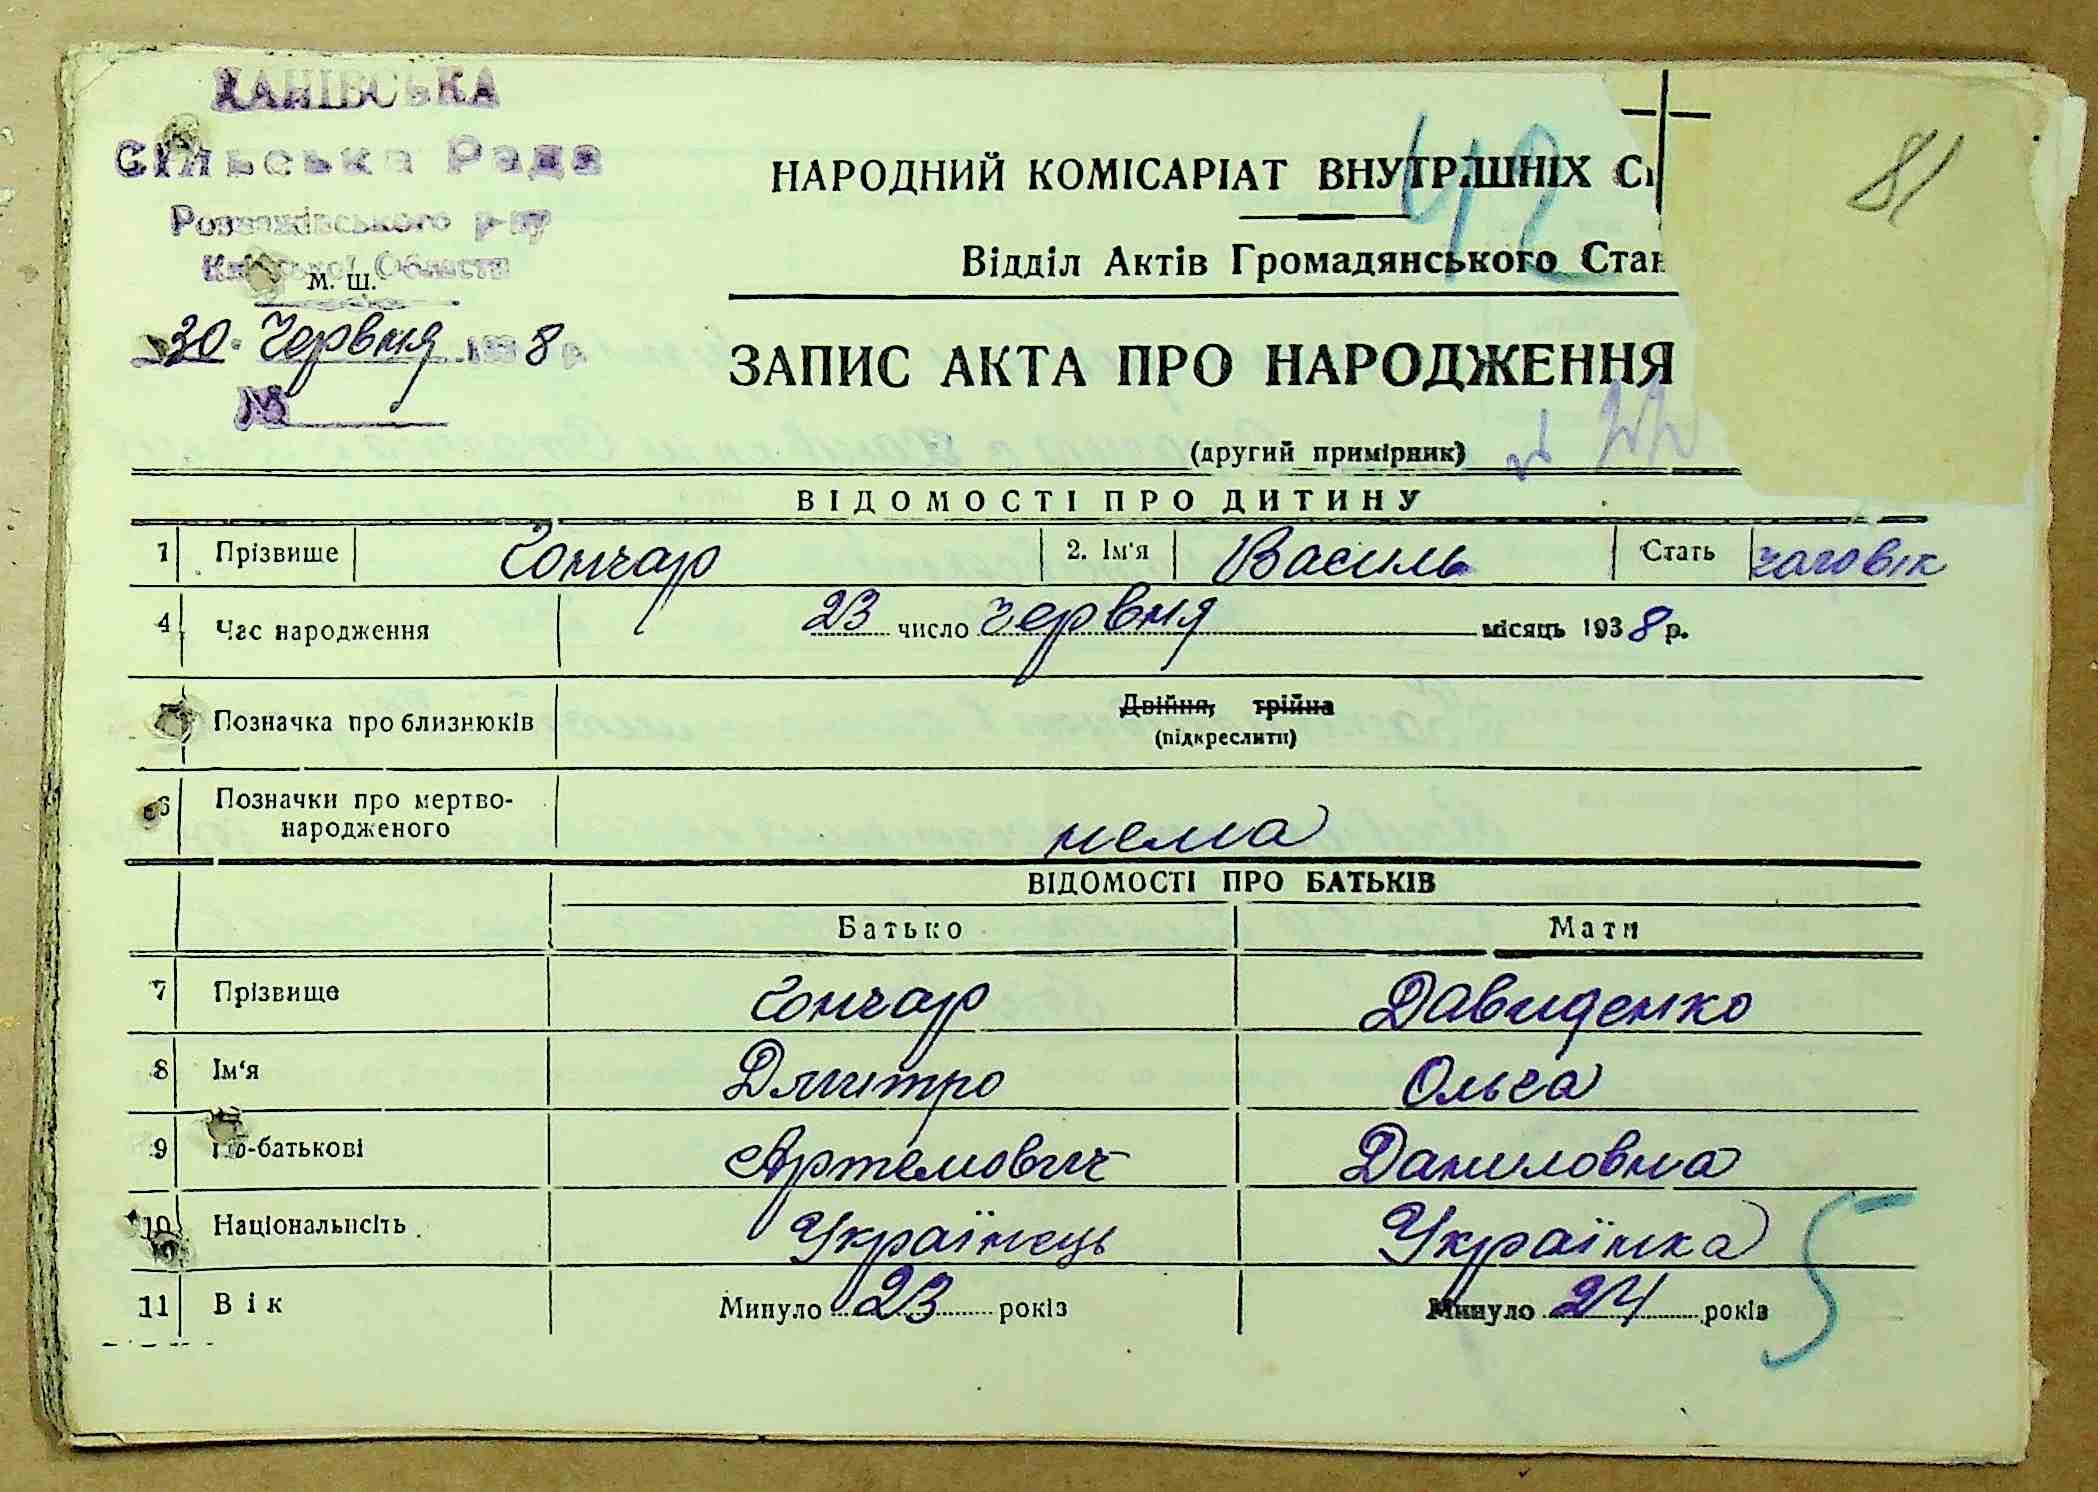 ХАНІВСЬКА
Сільська Рада
Розважівського р-ну
Київської Области
М. Ш.
30. Червня 1938 р.
№
42
81
НАРОДНИЙ КОМІСАРІАТ ВНУТРІШНІХ С
Відділ Актів Громадянського Стан
ЗАПИС АКТА ПРО НАРОДЖЕННЯ
(другий примірник) № 22
ВІДОМОСТІ ПРО ДИТИНУ
1 Прізвище Гончар 2. Ім'я Василь Стать чоловік
4 Час народження 23 число червня місяць 1938 р.
Позначка про близнюків Двійня, трійна
(підкреслити)
6 Позначки про мертво-
народженого нема
ВІДОМОСТІ ПРО БАТЬКІВ
Батько Мати
7 Прізвище Гончар Давиденко
8 Ім'я Дмитро Ольга
9 По-батькові Артемович Даниловна
10 Національність Українець Українка
11 Вік Минуло 23 років Минуло 24 років
5